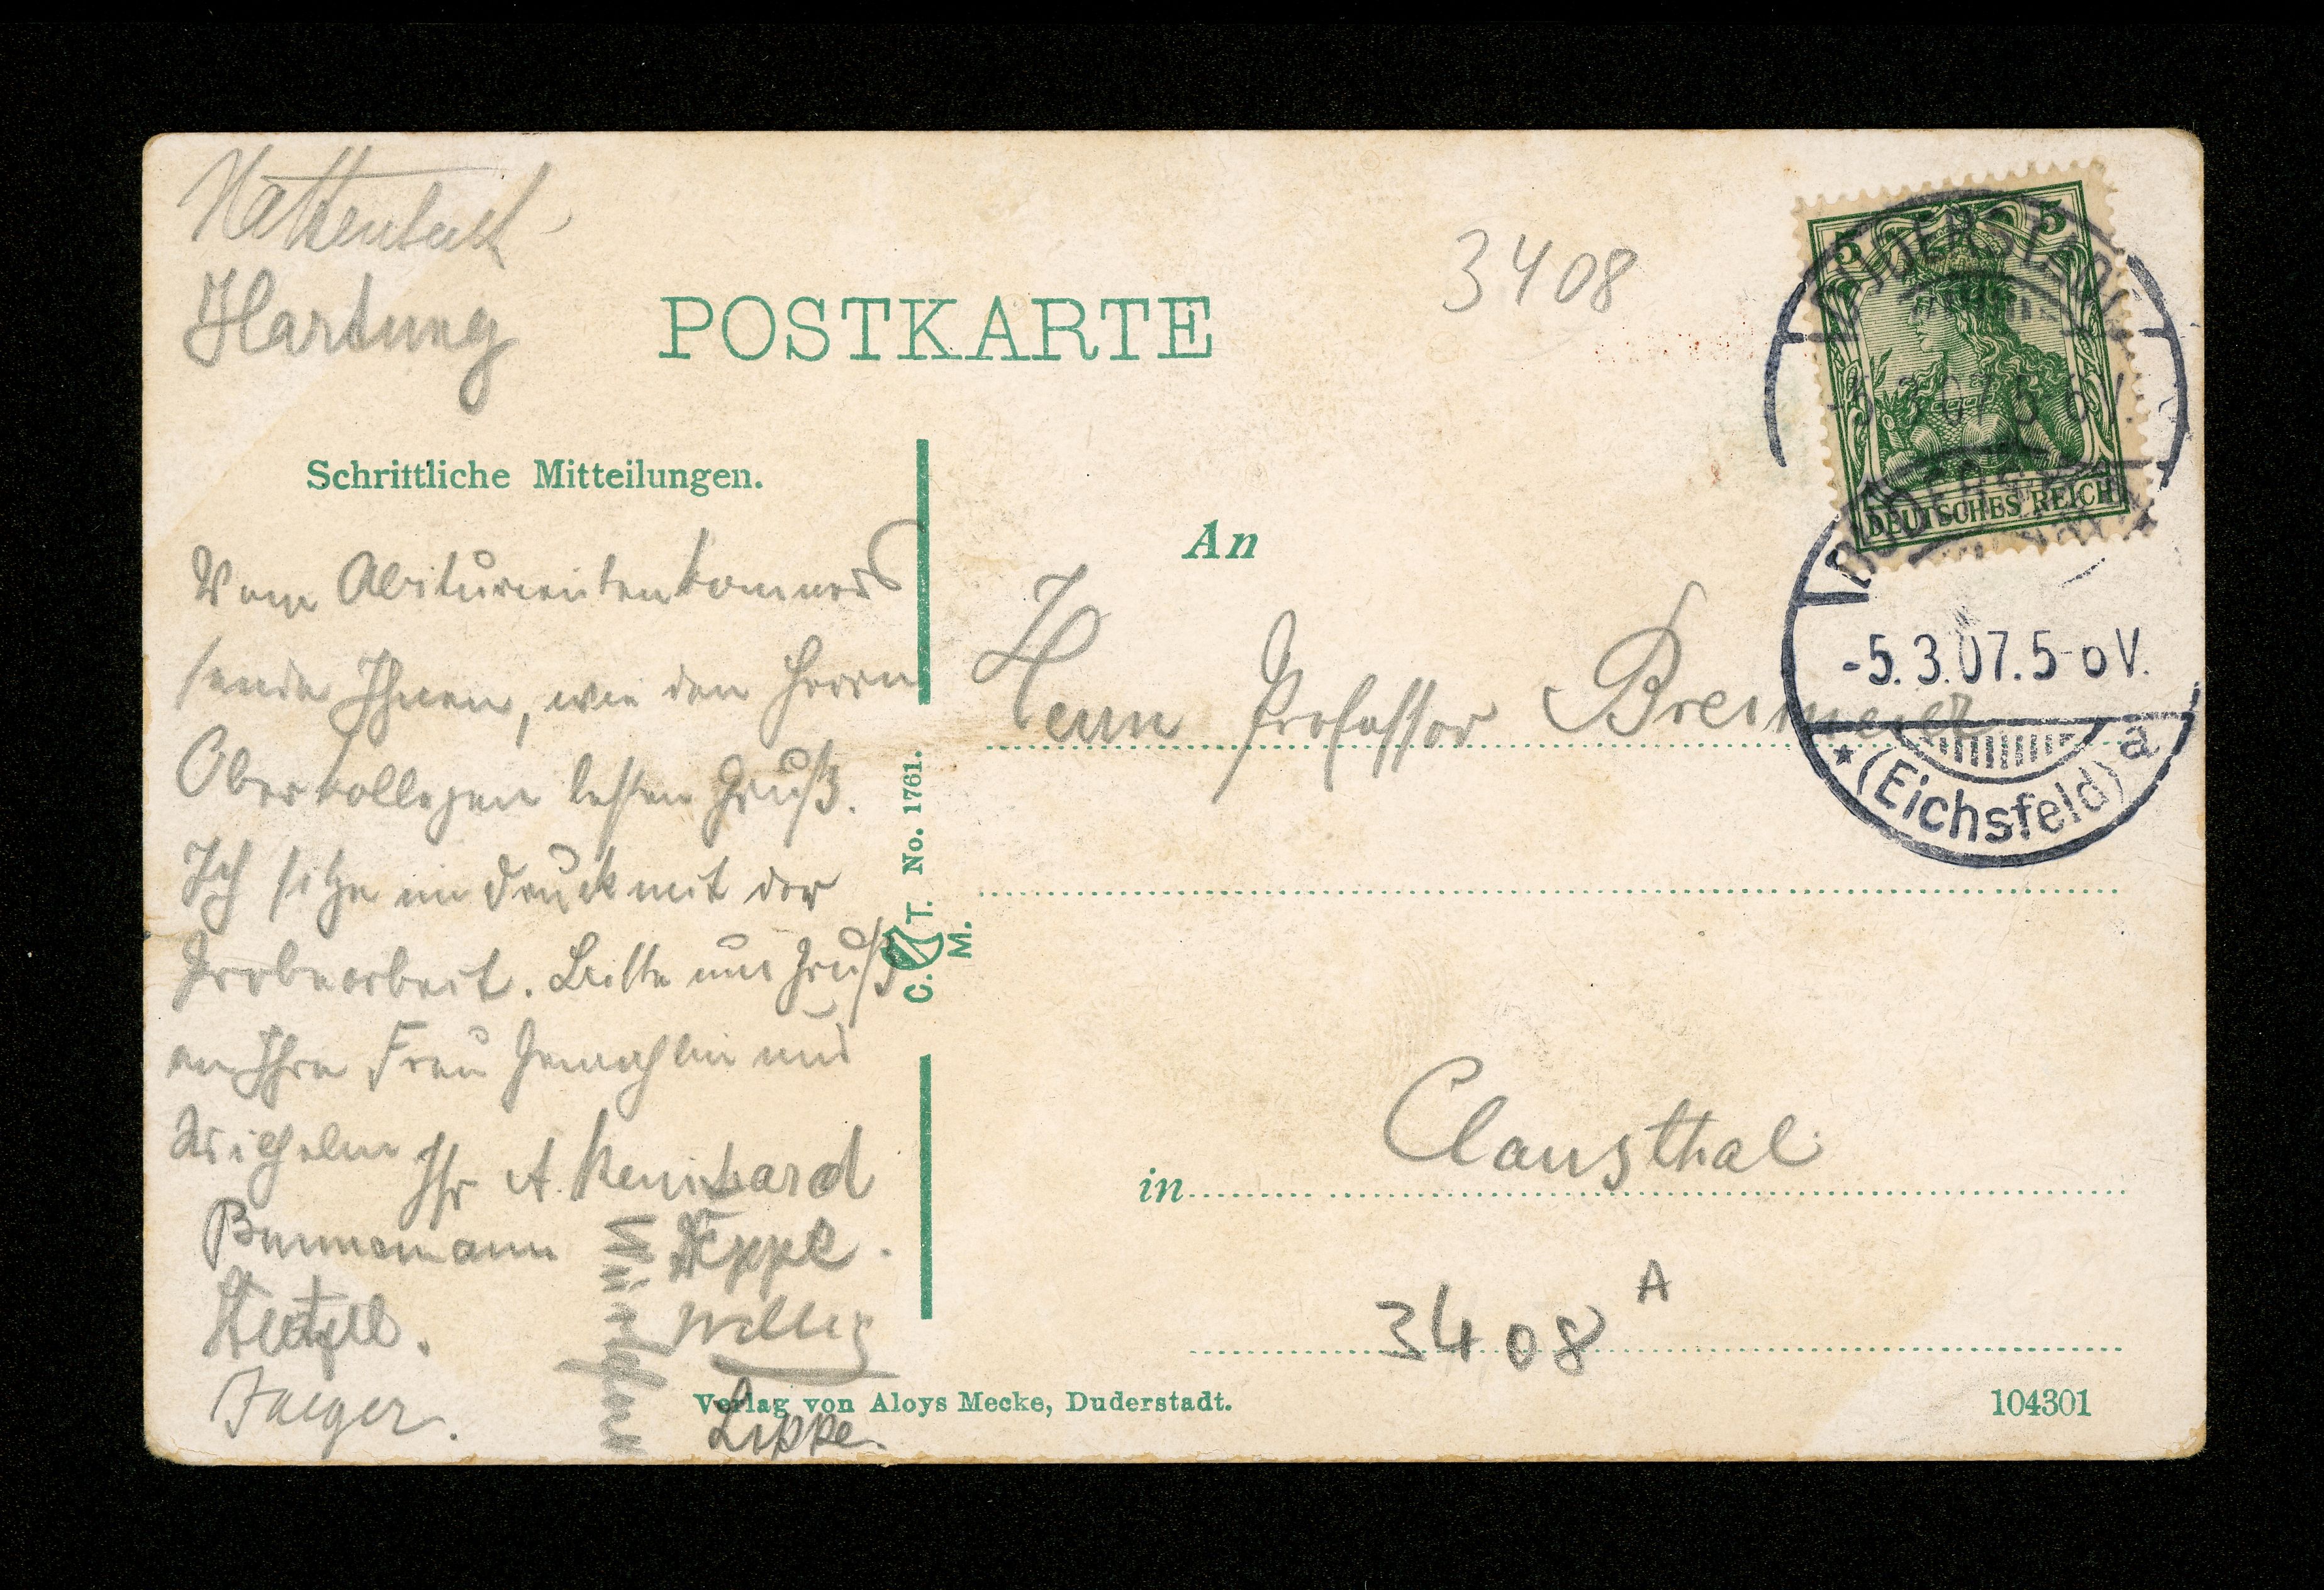 Hartung
POSTKARTE
3408
5 5
DEUTSCHES REICH
DUDERSTADT
-5.3.07.5-6V.
DUDERSTADT
-5.3.07.5-6V.
(Eichsfeld) a
Schriftliche Mitteilungen.
Vom Abiturientenkommers
sende Ihnen, wie den Herrn
Oberkollegen besten Gruß.
Ich sitze im Druck mit der
Probearbeit. Bitte um Gruß
an Ihre Frau Gemahlin und
Ihr A. Reinhard
Bunnemann
Jaeger.
Teppe.
Willig
Lippe.
C. T. M. No. 1761.
An
Herrn Professor Breimeier
in Clausthal
3408 A
Verlag von Aloys Mecke, Duderstadt.
104301